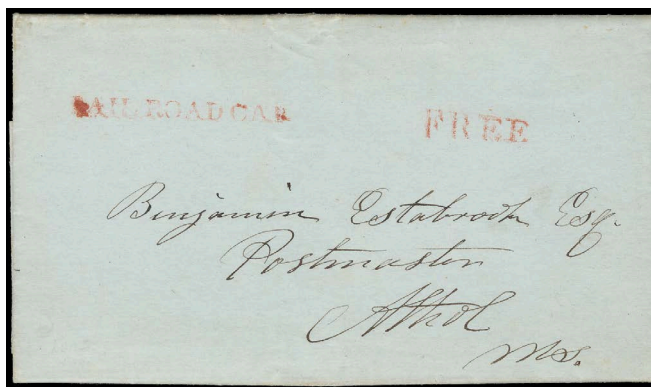 RAIL ROAD CAR FREE
Benjamin Estabrook Esq.
Postmaster
Athol
Ms.